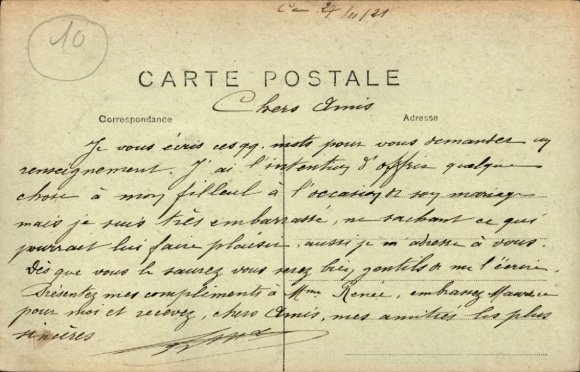 Ce 24/11/21
10
CARTE POSTALE
Chers Amis
Correspondance Adresse
Je vous écris ces qq. mots pour vous demander un
renseignement. J'ai l'intention d'offrir quelque
chose à mon filleul à l'occasion de son mariage
mais je suis très embarrassée, ne sachant ce qui
pourrait lui faire plaisir, aussi je m'adresse à vous.
Dès que vous le saurez vous serez bien gentils de me l'écrire.
Présentez mes compliments à Mme Renée, embrassez Maurice
pour moi et recevez, chers Amis, mes amitiés les plus
sincères